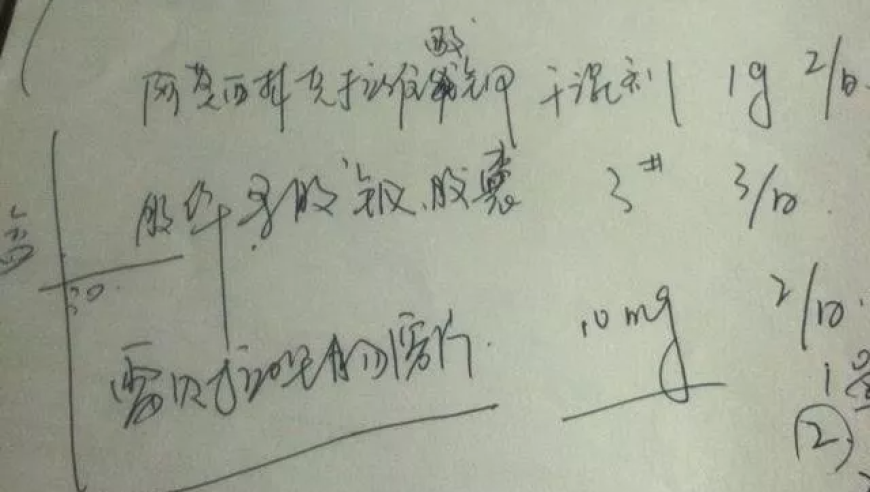 阿莫西林克拉维酸钾 干混剂 1g 2/日.
胶体果胶铋胶囊 3# 3/日.
30.
雷贝拉唑肠溶片. 10mg 2/日.
1
②